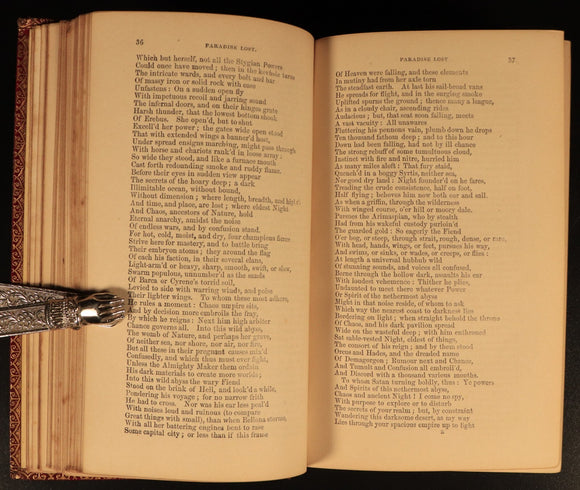 36
PARADISE LOST.
Which but herself, not all the Stygian Powers
Could once have moved; then in the keyhole turns
The intricate wards, and every bolt and bar
Of massy iron or solid rock with ease
Unfastens: On a sudden open fly
With impetuous recoil and jarring sound
The infernal doors, and on their hinges grate
Harsh thunder, that the lowest bottom shook
Of Erebus. She open'd, but to shut
Excell'd her power; the gates wide open stood
That with extended wings a banner'd host,
Under spread ensigns marching, might pass through
With horse and chariots rank'd in loose array:
So wide they stood, and like a furnace mouth
Cast forth redounding smoke and ruddy flame.
Before their eyes in sudden view appear
The secrets of the hoary deep; a dark
Illimitable ocean, without bound,
Without dimension; where length, breadth, and
And time, and place, are lost; where eldest Night
And Chaos, ancestors of Nature, hold
Eternal anarchy, amidst the noise
Of endless wars, and by confusion stand.
For hot, cold, moist, and dry, four champions fierce
Strive here for mastery, and to battle bring
Their embryon atoms; they around the flag
Of each his faction, in their several clans,
Light-arm'd or heavy, sharp, smooth, swift, or slow,
Swarm populous, unnumber'd as the sands
Of Barca or Cyrene's torrid soil,
Levied to side with warring winds, and poise
Their lighter wings. To whom these most adhere,
He rules a moment: Chaos umpire sits,
And by decision more embroils the fray,
By which he reigns: Next him high arbiter
Chance governs all. Into this wild abyss,
The womb of Nature, and perhaps her grave,
Of neither sea, nor shore, nor air, nor fire,
But all these in their pregnant causes mix'd
Confusedly, and which thus must ever fight,
Unless the Almighty Maker them ordain
His dark materials to create more worlds;
Into this wild abyss the wary Fiend
Stood on the brink of Hell, and look'd a while,
Pondering his voyage; for no narrow frith
He had to cross. Nor was his ear less peal'd
With noises loud and ruinous (to compare
Great things with small), than when Bellona storms,
With all her battering engines bent to rase
Some capital city; or less than if this frame
PARADISE LOST
37
Of Heaven were falling, and these elements
In mutiny had from her axle torn
The steadfast earth. At last his sail-broad vans
He spreads for flight, and in the surging smoke
Uplifted spurns the ground; thence many a league,
As in a cloudy chair, ascending rides
Audacious; but, that seat soon failing, meets
A vast vacuity: All unawares
Fluttering his pennons vain, plumb down he drops
Ten thousand fathom deep; and to this hour
Down had been falling, had not by ill chance
The strong rebuff of some tumultuous cloud,
Instinct with fire and nitre, hurried him
As many miles aloft: That fury staid,
Quench'd in a boggy Syrtis, neither sea,
Nor good dry land: Night founder'd on he fares,
Treading the crude consistence, half on foot,
Half flying; behoves him now both oar and sail.
As when a griffin, through the wilderness
With winged course, o'er hill or moory dale,
Pursues the Arimaspian, who by stealth
Had from his wakeful custody purloin'd
The guarded gold: So eagerly the Fiend
O'er bog, or steep, through strait, rough, dense, or rare,
With head, hands, wings, or feet, pursues his way,
And swims, or sinks, or wades, or creeps, or flies:
At length a universal hubbub wild
Of stunning sounds, and voices all confused,
Borne through the hollow dark, assaults his ear
With loudest vehemence: Thither he plies,
Undaunted to meet there whatever Power
Or Spirit of the nethermost abyss
Might in that noise reside, of whom to ask
Which way the nearest coast to darkness lies
Bordering on light; when straight behold the throne
Of Chaos, and his dark pavilion spread
Wide on the wasteful deep; with him enthroned
Sat sable-vested Night, eldest of things,
The consort of his reign; and by them stood
Orcus and Hades, and the dreaded name
Of Demagorgon; Rumour next and Chance,
And Tumult and Confusion all embroil'd,
And Discord with a thousand various mouths.
To whom Satan turning boldly, thus: Ye powers
And Spirits of this nethermost abyss,
Chaos and ancient Night! I come no spy,
With purpose to explore or to disturb
The secrets of your realm; but, by constraint
Wandering this darksome desert, as my way
Lies through your spacious empire up to light